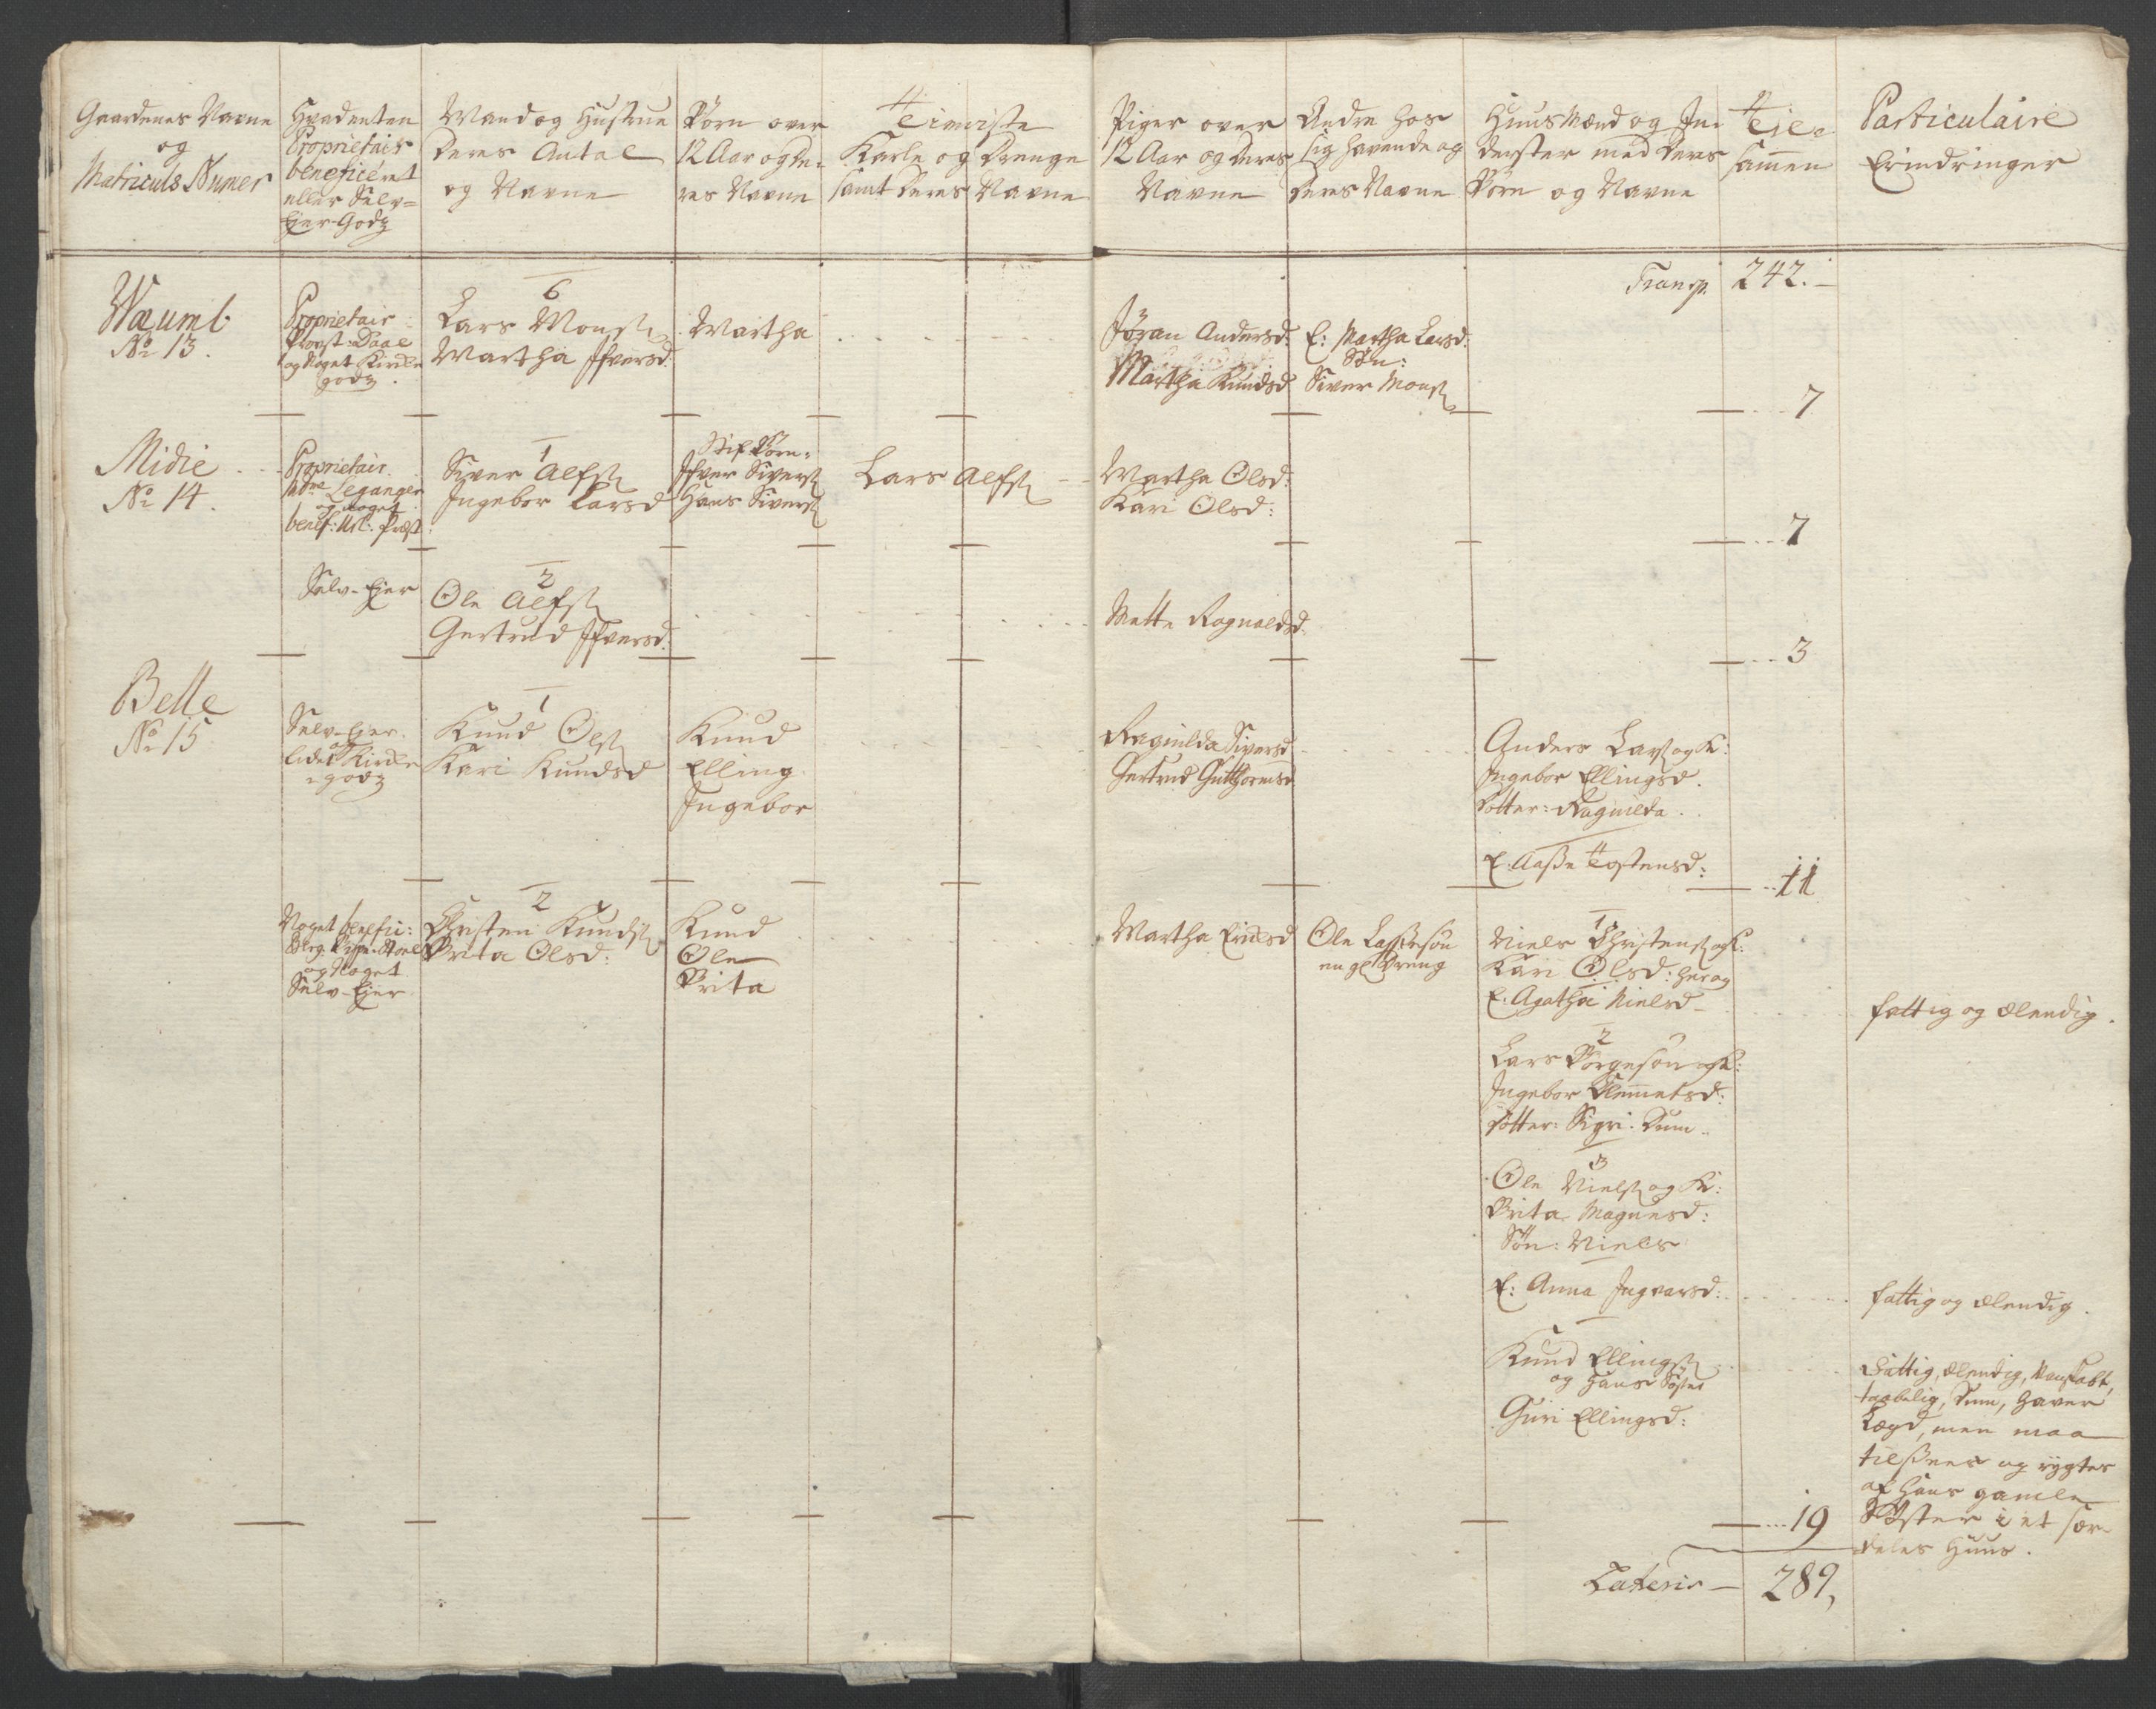 Gaardenes Navne
og
Matriculs Numer
Hvadenten
Proprietair
beneficéret
eller Selv=
Ejer-Godz
Mand og Hustrue
Deres Antal
og Navne
Børn over
12 Aar og De-
res Navne
Tieniste
Karle og Drenge
samt Deres Navne
Piger over
12 Aar og Deres
Navne
Andre hos
sig havende og
Deres Navne
Huusmænd og In-
derster med Deres
Børn og Navne
Tile
sammen
Particulaire
Erindringer
Transp. 242.
Næuml.
No 13.
Proprietair
Provst Daae
og Noget Kirke
godz.
6
Lars Monss.
Martha Ifversd:
Martha
Jøran Andersd:
Martha Knudsd
E: Martha Larsd:
Søn:
Siver Monss.
7
Midie
No 14.
Proprietair
Leganger
og noget
benef:
1
Siver Alfss.
Ingebor Larsd
Stif Børn:
Ifver Siverss.
Hans Siverss.
Lars Alfss.
Martha Olsd:
Kari Olsd:
7
Selv-Ejer
2
Ole Alfss.
Gertrud Ifversd.
Mette Rognaldsd.
3
Belle
No 15
Selv-Ejer
og
lidet Kirke
godz
1
Knud Olss.
Kari Knudsd
Knud
Elling
Ingebor
Ragnilda Siversd
Gertrud Guttormsd
Anders Larss. og K:
Ingebor Ellingsd.
Dotter: Ragnilda.
E. Aasse Tostensd:
11
Noget benefic:
og Noget
Selv-Ejer
2
Christen Knudss.
Brita Olsd:
Knud
Ole
Brita
Martha Erichsd
Ole Lassesøn
en gl. Dreng
1
Niels Christenss. og K:
Kari Olsd:
E. Agatha Nielsd
fattig og Elendig.
2
Lars Børgesøn og K:
Ingebor Clemmetsd:
Dotter: Sigri. Dum.
3
Ole Nielss. og K:
Brita Magnesd:
Søn: Niels
E: Anna Ingvarsd:
fattig og Elendig.
Knud Ellingss.
og Hans Søster
Guri Ellingsd:
Fattig, Elendig, Vanskabt,
taabelig, Dum, haver
Lægd, men maa
tilsees og rygtes
af Hans gamle
Søster i et sær-
deles Huus.
19
Lateris 289,